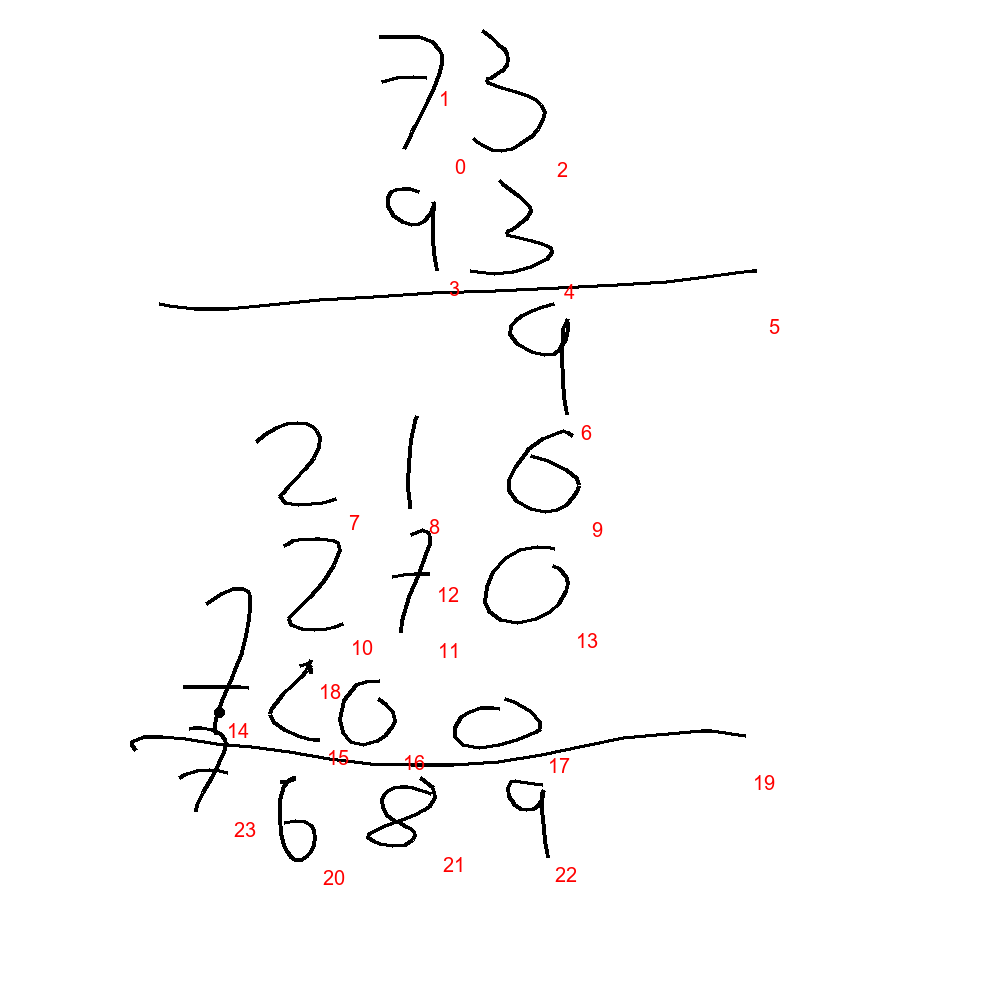 73
1
0 2
93
3 4
5
9
6
216
7 8 9
270
12
10 11 13
7200
18
14 15 16 17
19
7689
23 20 21 22